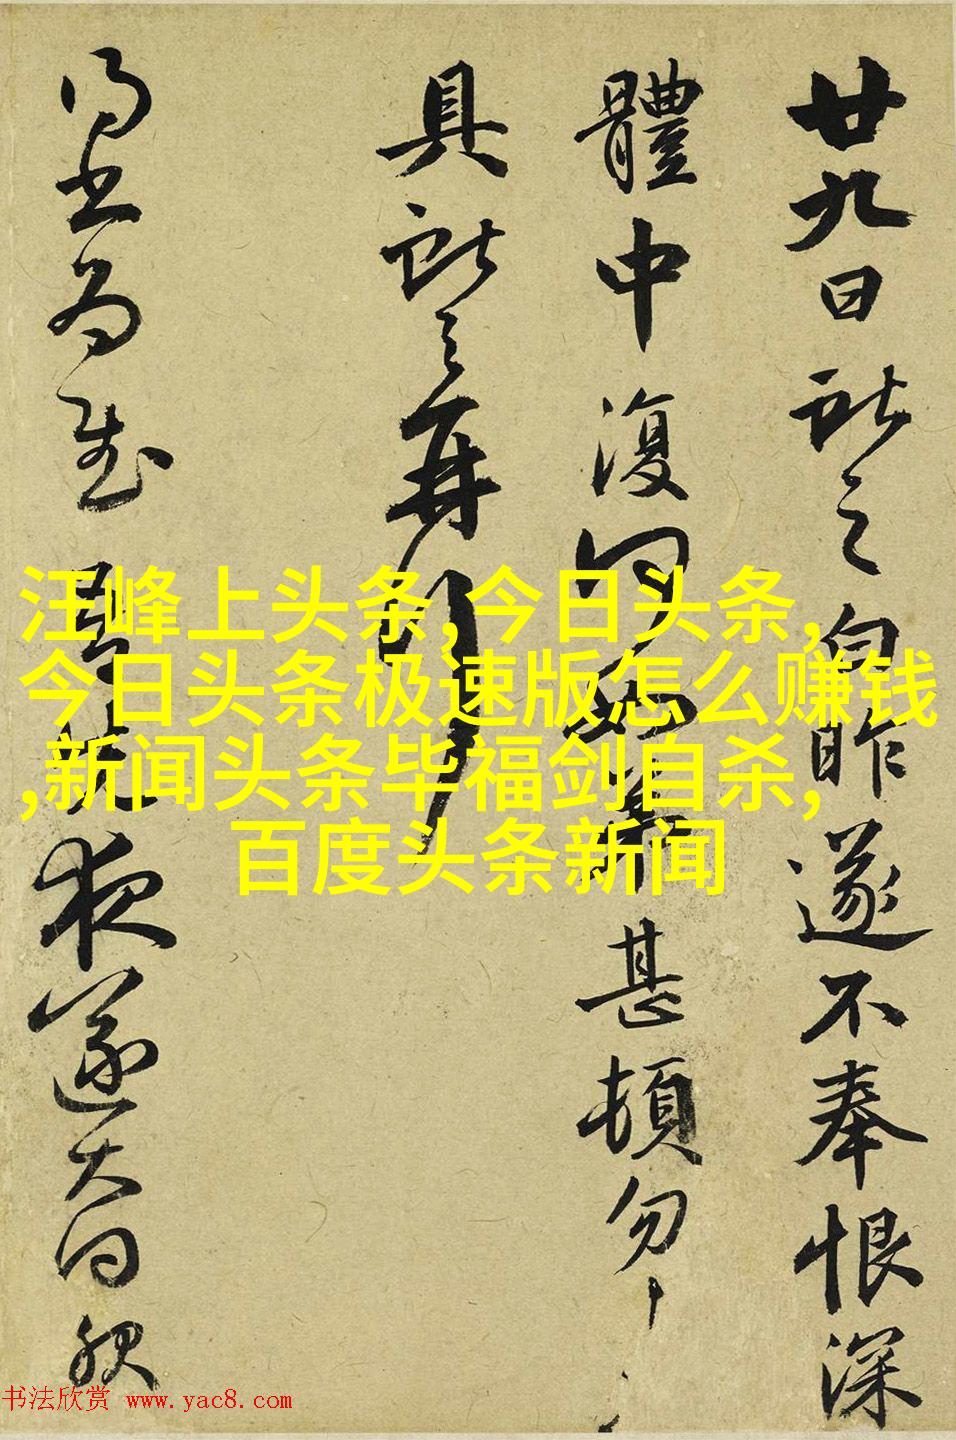 廿九日獻之白昨遂不奉恨深
體中復何如弟甚頓匆
具獻之再拜
為慰夜遂大
汪峰上头条,今日头条,
今日头条极速版怎么赚钱
,新闻头条毕福剑自杀,
百度头条新闻
书法欣赏 www.yac8.com